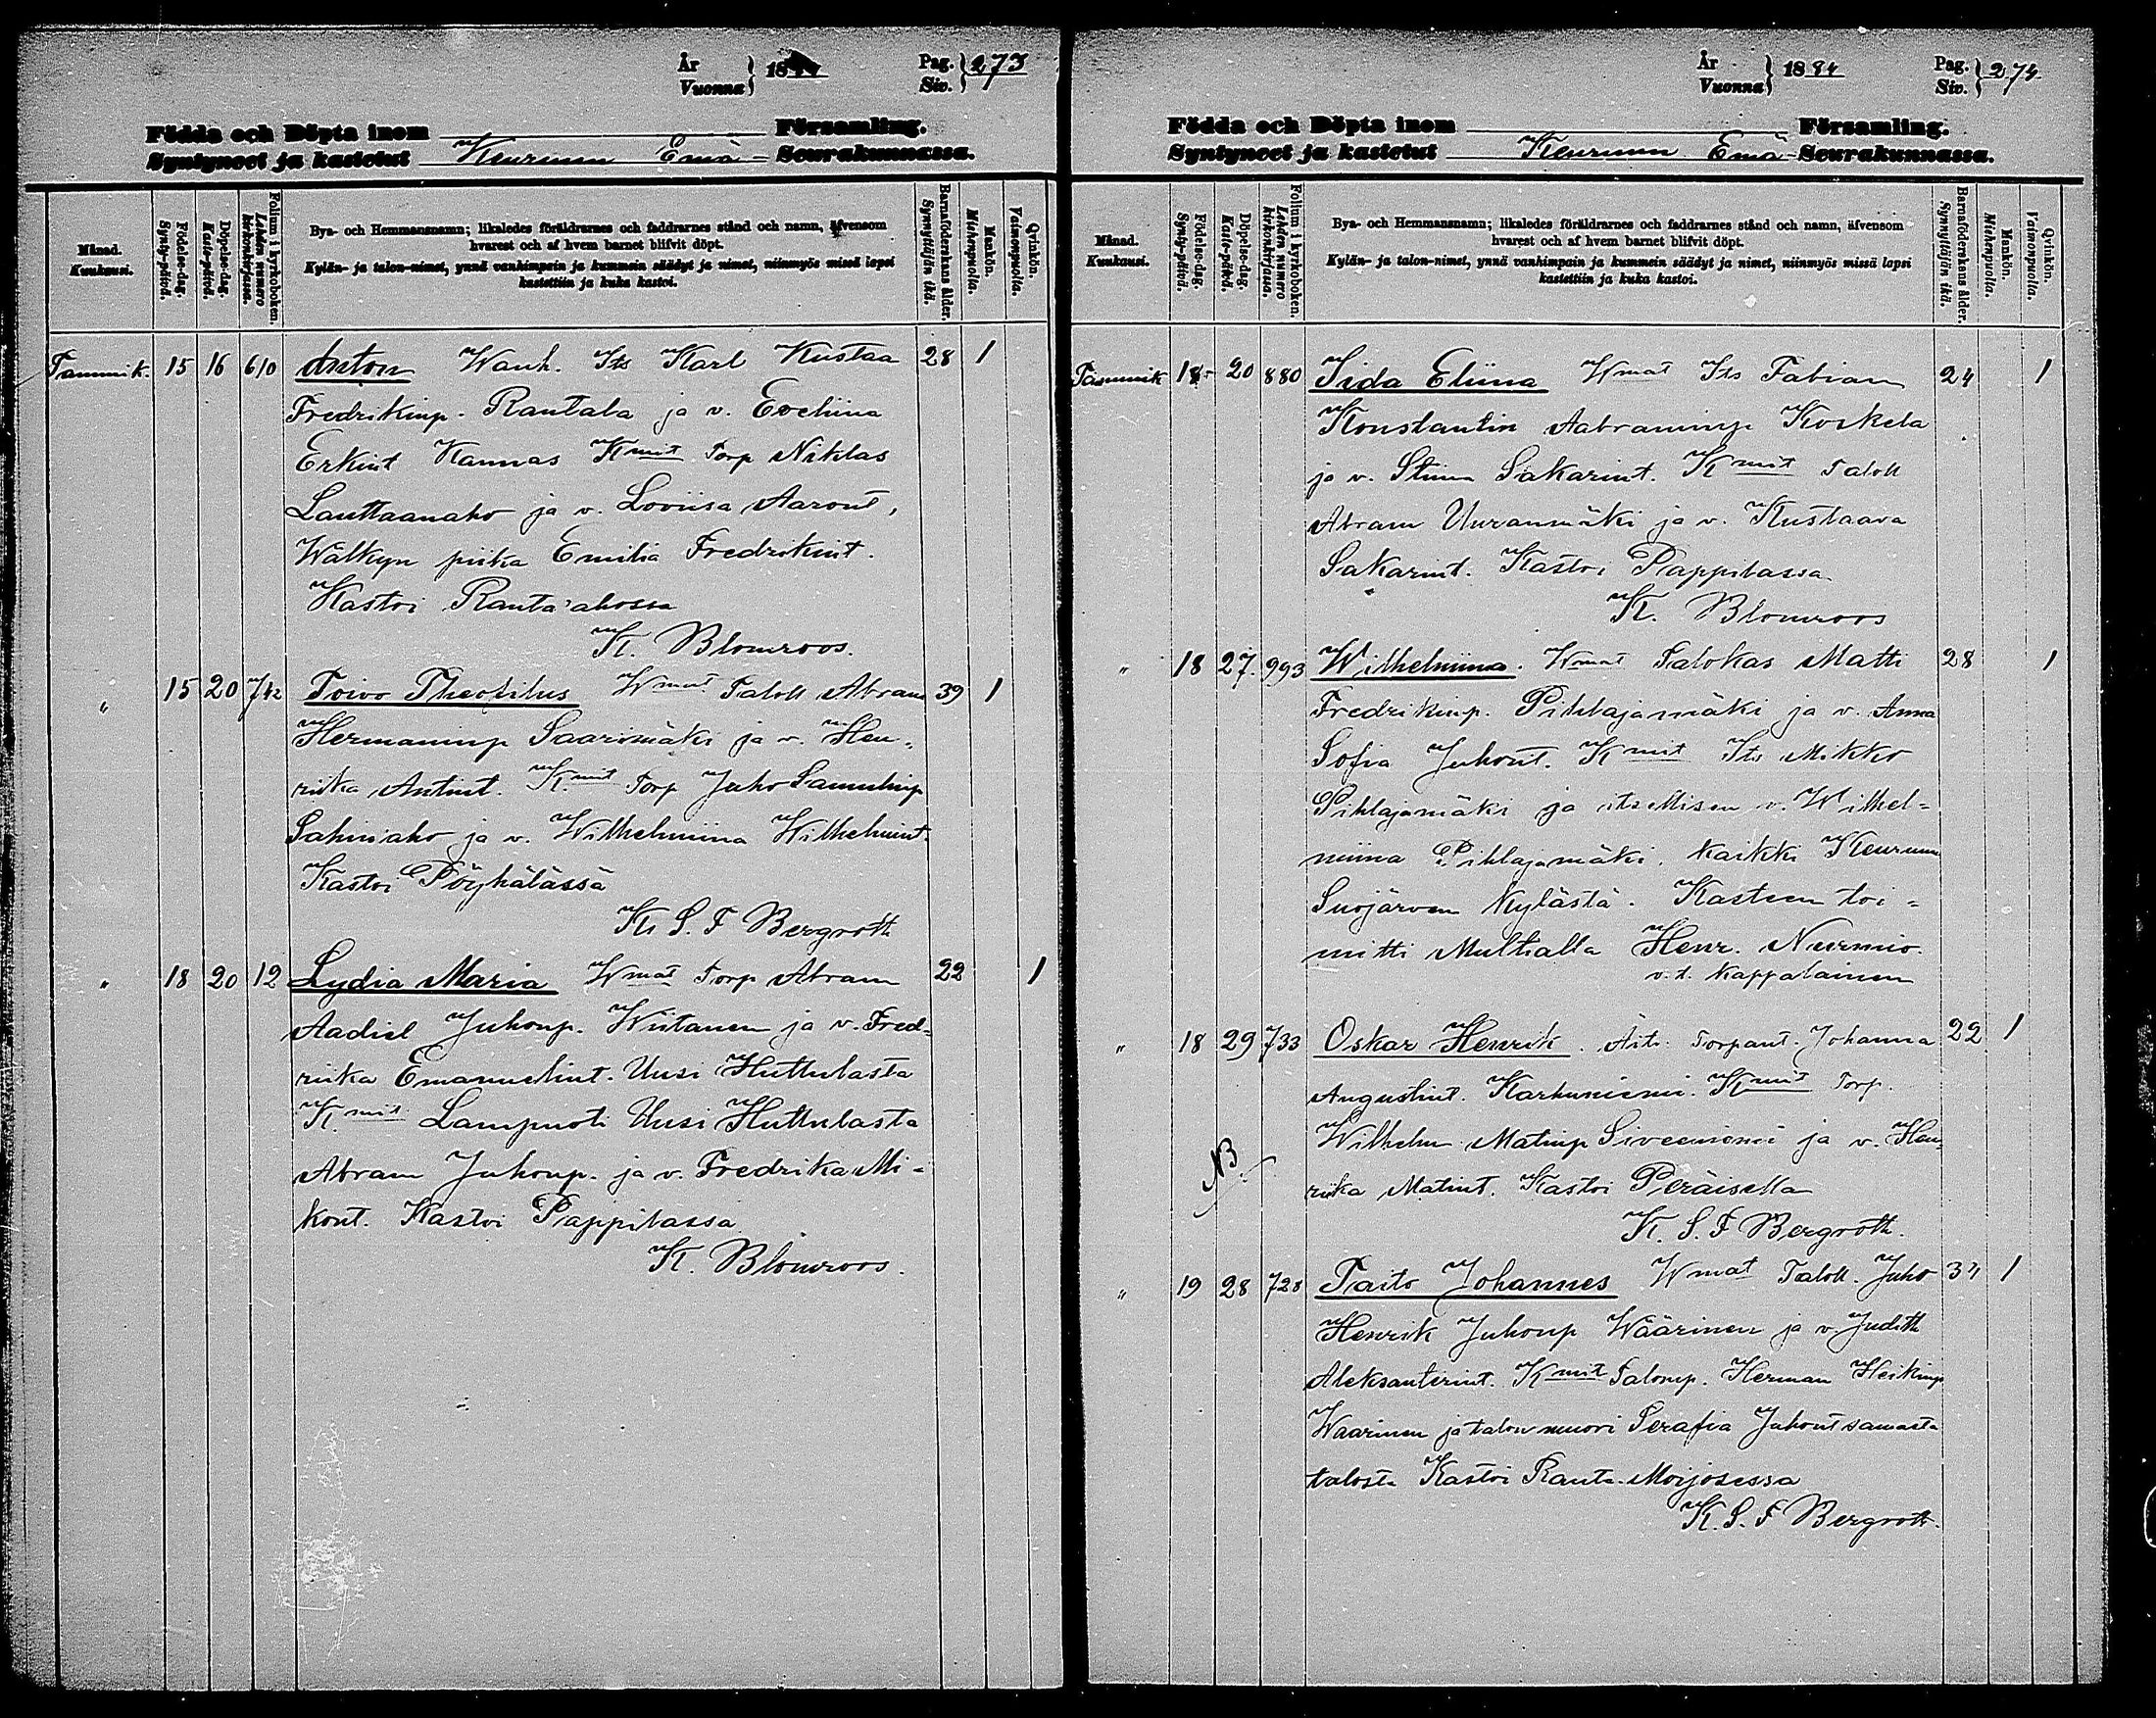 År
Vuonna } 18
Pag.
Siv. } 273
Födda och Döpta inom Församling.
Syntyneet ja kastetut Keuruun Emä- Seurakunnassa.
Månad.
Kuukausi.
Födelse-dag.
Synty-päivä.
Döpelse-dag.
Kaste-päivä.
Folium i kyrkoboken.
Lehden numero
kirkonkirjassa.
Bya- och Hemmansnamn; likaledes föräldrarnes och faddrarnes stånd och namn, äfvensom
hvarest och af hvem barnet blifvit döpt.
Kylän- ja talon-nimet, ynnä vanhimpain ja kummein säädyt ja nimet, niinmyös missä lapsi
kastettiin ja kuka kastoi.
Barnaföderskans ålder.
Synnyttäjän ikä.
Mankön.
Miehenpuolia.
Qvinkön.
Vaimonpuolia.
Tammik. 15 16 610 Anton Wanh. Its Karl Kustaa 28 1
Fredrikinp. Rantala ja v. Eveliina
Erkint Kannas Kmit Torp Niklas
Lauttaanaho ja v. Loviisa Aaront,
Wälkyn piika Emilia Fredrikint.
Kastoi Ranta'ahossa
K. Blomroos.
" 15 20 742 Toivo Theofilus Wmat Taloll Abram 39 1
Hermaninp Saarimäki ja v. Hen-
riika Antint. Kmit Torp Juho Samulinp
Sahinaho ja v. Wilhelmiina Wilhelmint.
Kastoi Pöyhälässä
K. S. F Bergroth
" 18 20 12 Lydia Maria Wmat Torp Abram 22 1
Aadiel Juhonp. Wiitanen ja v. Fred-
riika Emanuelint. Uusi Huttulasta
K. mit Lampuoti Uusi Huttulasta
Abram Juhonp. ja v. Fredrika Mi-
kont. Kastoi Pappilassa
K. Blomroos.
År
Vuonna } 1884
Pag.
Siv. } 274
Födda och Döpta inom Församling.
Syntyneet ja kastetut Keuruun Emä- Seurakunnassa.
Månad.
Kuukausi.
Födelse-dag.
Synty-päivä.
Döpelse-dag.
Kaste-päivä.
Folium i kyrkoboken.
Lehden numero
kirkonkirjassa.
Bya- och Hemmansnamn; likaledes föräldrarnes och faddrarnes stånd och namn, äfvensom
hvarest och af hvem barnet blifvit döpt.
Kylän- ja talon-nimet, ynnä vanhimpain ja kummein säädyt ja nimet, niinmyös missä lapsi
kastettiin ja kuka kastoi.
Barnaföderskans ålder.
Synnyttäjän ikä.
Mankön.
Miehenpuolia.
Qvinkön.
Vaimonpuolia.
Tammik 18 20 880 Iida Eliina Wmat Its Fabian 24 1
Konstantin Aabraminp Koskela
ja v. Stiina Sakarint. Kmit Taloll
Abram Uuranmäki ja v. Kustaava
Sakarint. Kastoi Pappilassa
K. Blomroos
" 18 27. 993 Wilhelmiina. Wmat Talokas Matti 28 1
Fredrikinp. Pihlajamäki ja v. Anna
Sofia Juhont. Kmit Its Mikko
Pihlajamäki ja itsellisen v. Wilhel-
miina Pihlajamäki, kaikki Keuruun
Suojärven kylästä. Kasteen toi-
mitti Multialla Henr. Nurmio.
v. t. kappalainen
" 18 29 733 Oskar Henrik. Äiti Torpant. Johanna 22 1
Augustint. Karhuniemi. Kmit Torp.
Wilhelm Matinp Siveeniemi ja v. Hen-
NB
riika Matint. Kastoi Peräisellä
K. S. F Bergroth.
" 19 28 728 Taito Johannes Wmat Taloll. Juho 34 1
Henrik Juhonp Wäärinen ja v. Judith
Aleksanterint. Kmit Talonp. Herman Heikinp
Waarinen ja talon muori Serafia Juhont samasta
talosta Kastoi Ranta-Moijosessa
K. S. F Bergroth.